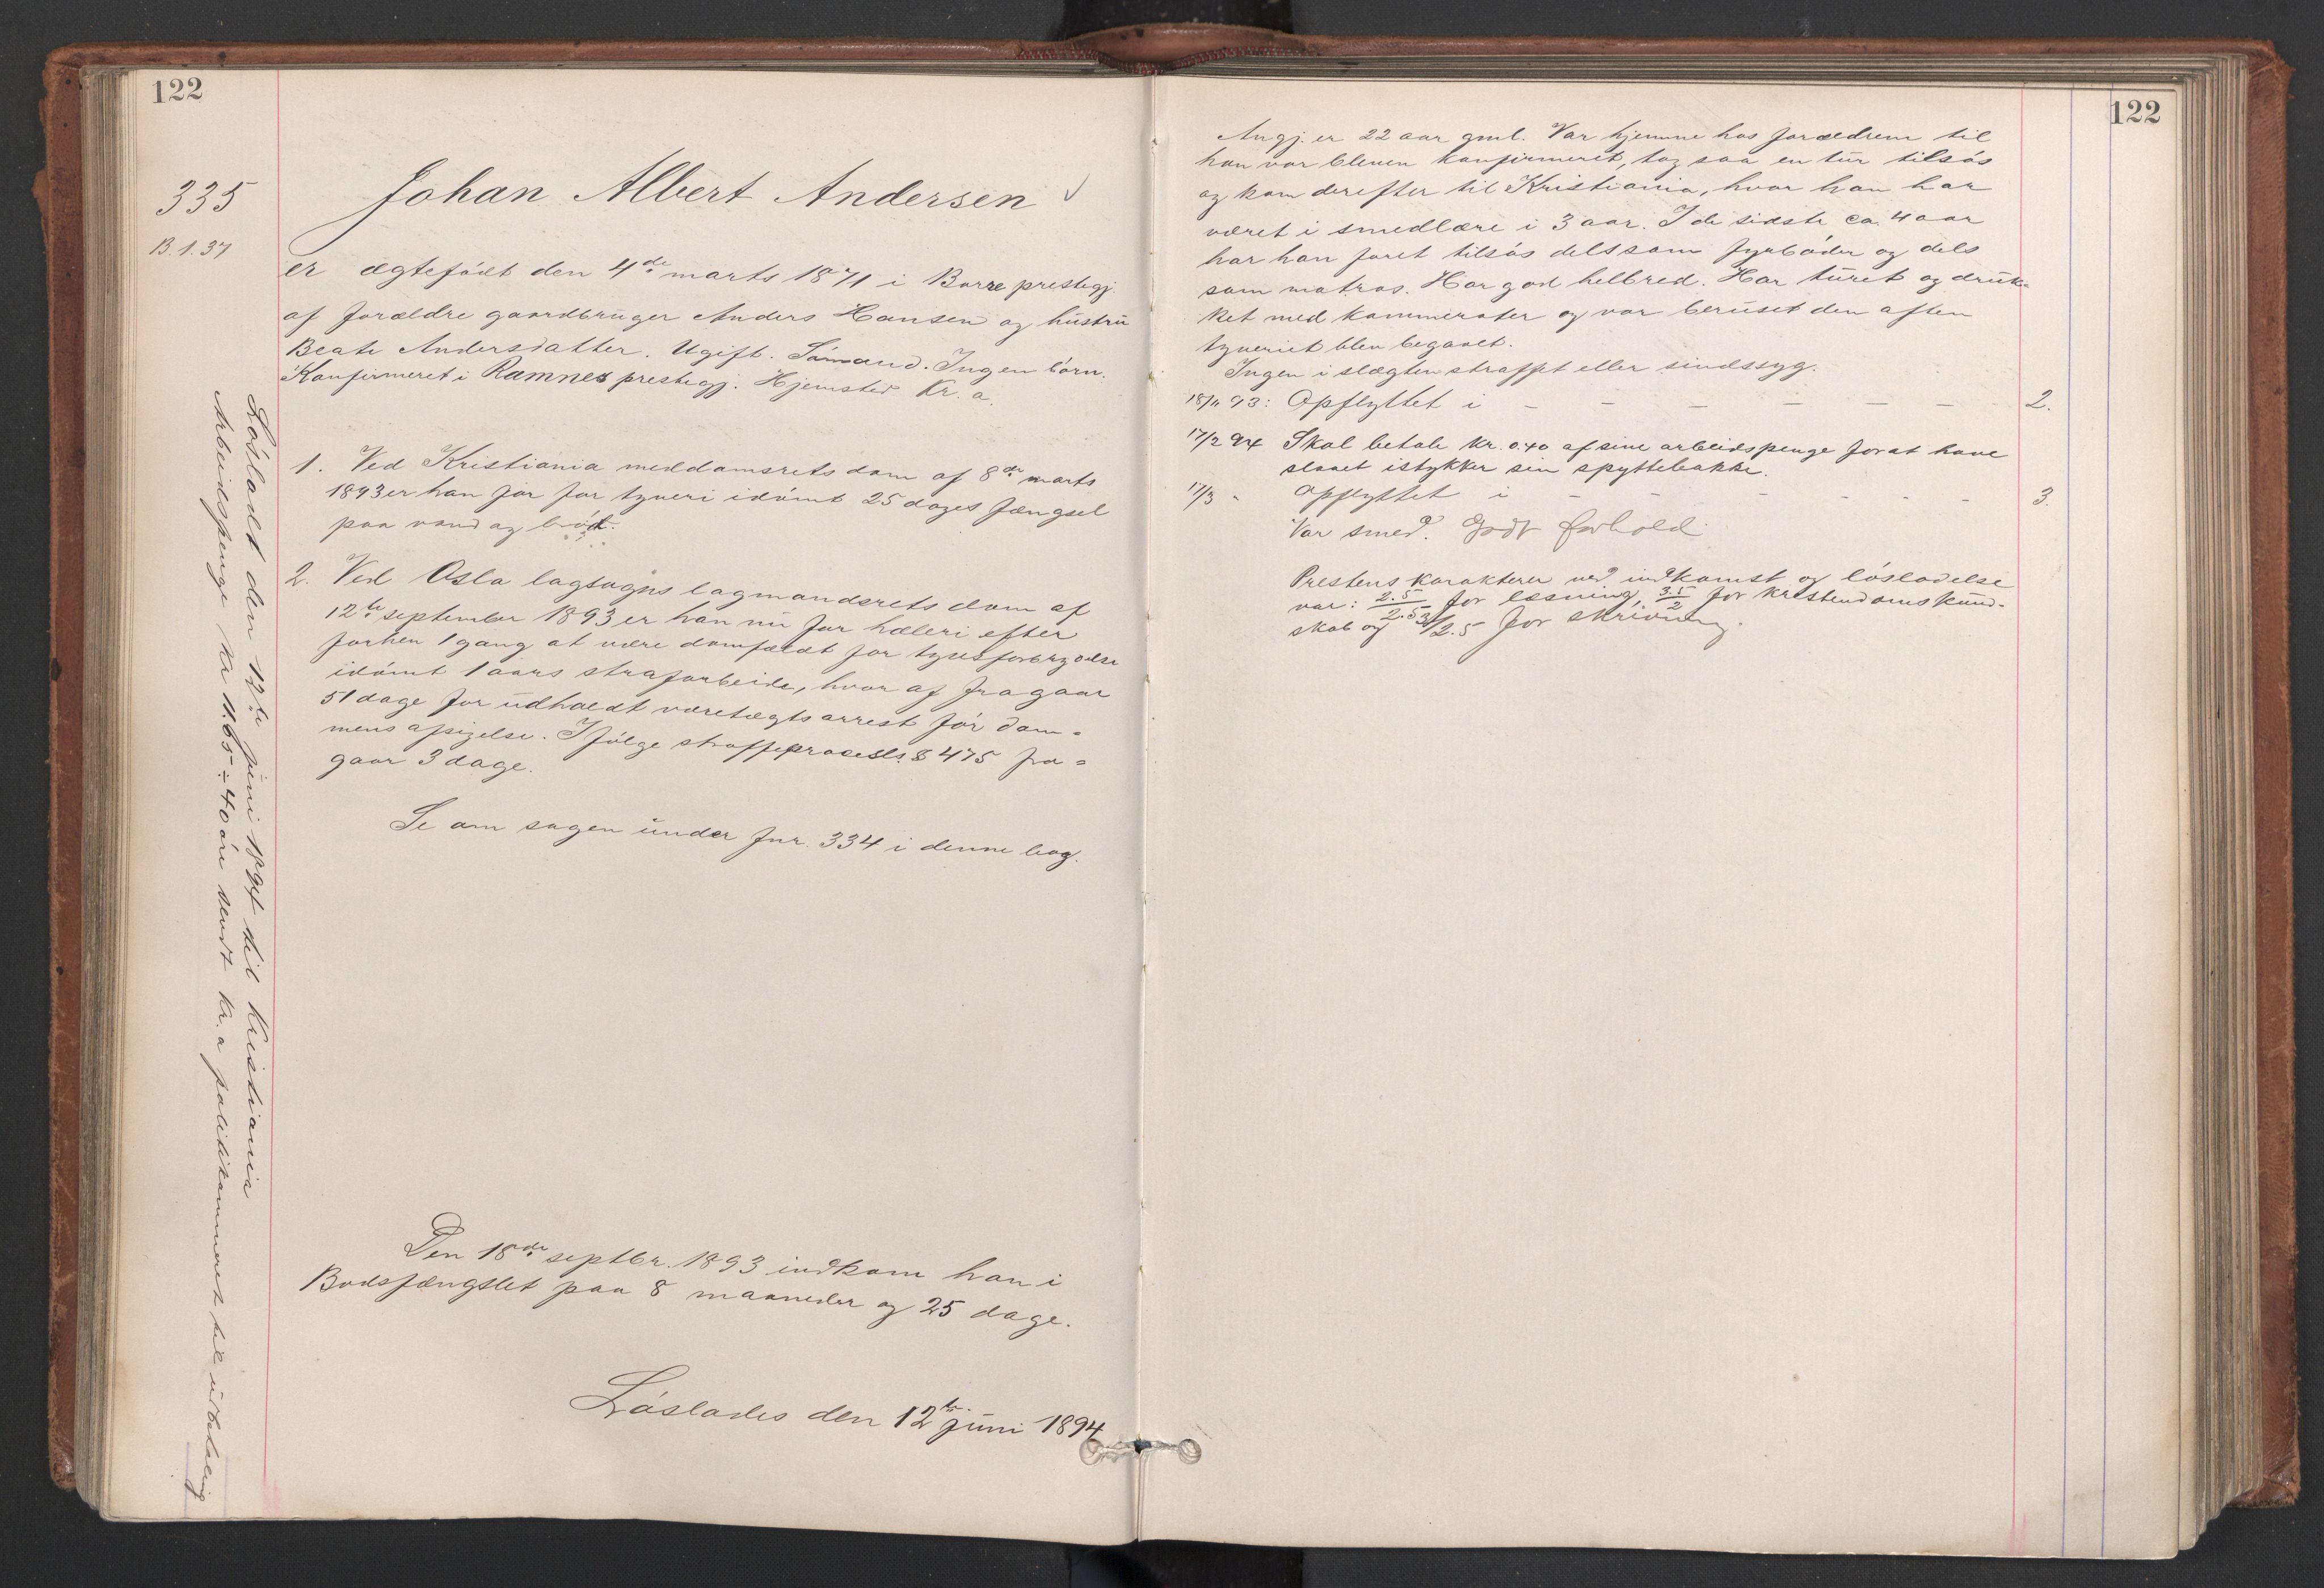 122
335
B. 1. 37
Johan Albert Andersen
er ægtefödt den 4de marts 1871 i Borre prestegj.
af forældre gaardbruger Anders Hansen og hustru
Beate Andersdatter. Ugift. Sömand. Ingen börn.
Konfirmeret i Ramnes prestegj. Hjemsted Kr. a.
1. Ved Kristiania meddomsrets dom af 8de marts
1893 er han för for tyveri idömt 25 dages fængsel
paa vand og bröd.
2. Ved Oslo lagsogns lagmandsrets dom af
12te september 1893 er han nu for hæleri efter
forhen 1 gang at være domfældt for tyvsforbrydelse
idömt 1 aars strafarbeide, hvor af fragaar
51 dage for udholdt varetægtsarrest för dom-
mens afsigelse. Ifölge straffeprocessls. § 475 fra-
gaar 3 dage.
Se om sagen under Fnr. 334 i denne bog.
Den 18de septbr. 1893 indkom han i
Bodsfængslet paa 8 maaneder og 25 dage.
Löslades den 12te juni 1894
Lösladt den 12te juni 1894 til Kristiania
Arbeidspenge kr. 11.65 ÷ 40 öre sendt Kr. a politikammeret til udbetaling
122
Angj. er 22 aar gml. Var hjemme hos forældrene til
han var bleven konfirmeret, tog saa en tur tilsös
og kom derefter til Kristiania, hvor han har
været i smedlære i 3 aar. I de sidste ca. 4 aar
har han faret tilsös dels som fyrböder og dels
som matros. Har god helbred. Har turet og druk-
ket med kammerater og var beruset den aften
tyveriet blev begaaet.
Ingen i slægten straffet eller sindssyg.
18/11 93: Opflyttet i – – – – – – 2.
17/2 94 Skal betale kr. 0.40 af sine arbeidspenge for at have
slaaet istykker sin spyttebakke.
17/3 " Opflyttet i – – – – – – 3.
Var smed. Godt forhold.
Prestens karakterer ved indkomst og lösladelse
var: 2.5/2.5 for læsning, 3.5/2 for kristendomskund-
skab og 3/2.5 for skrivning.